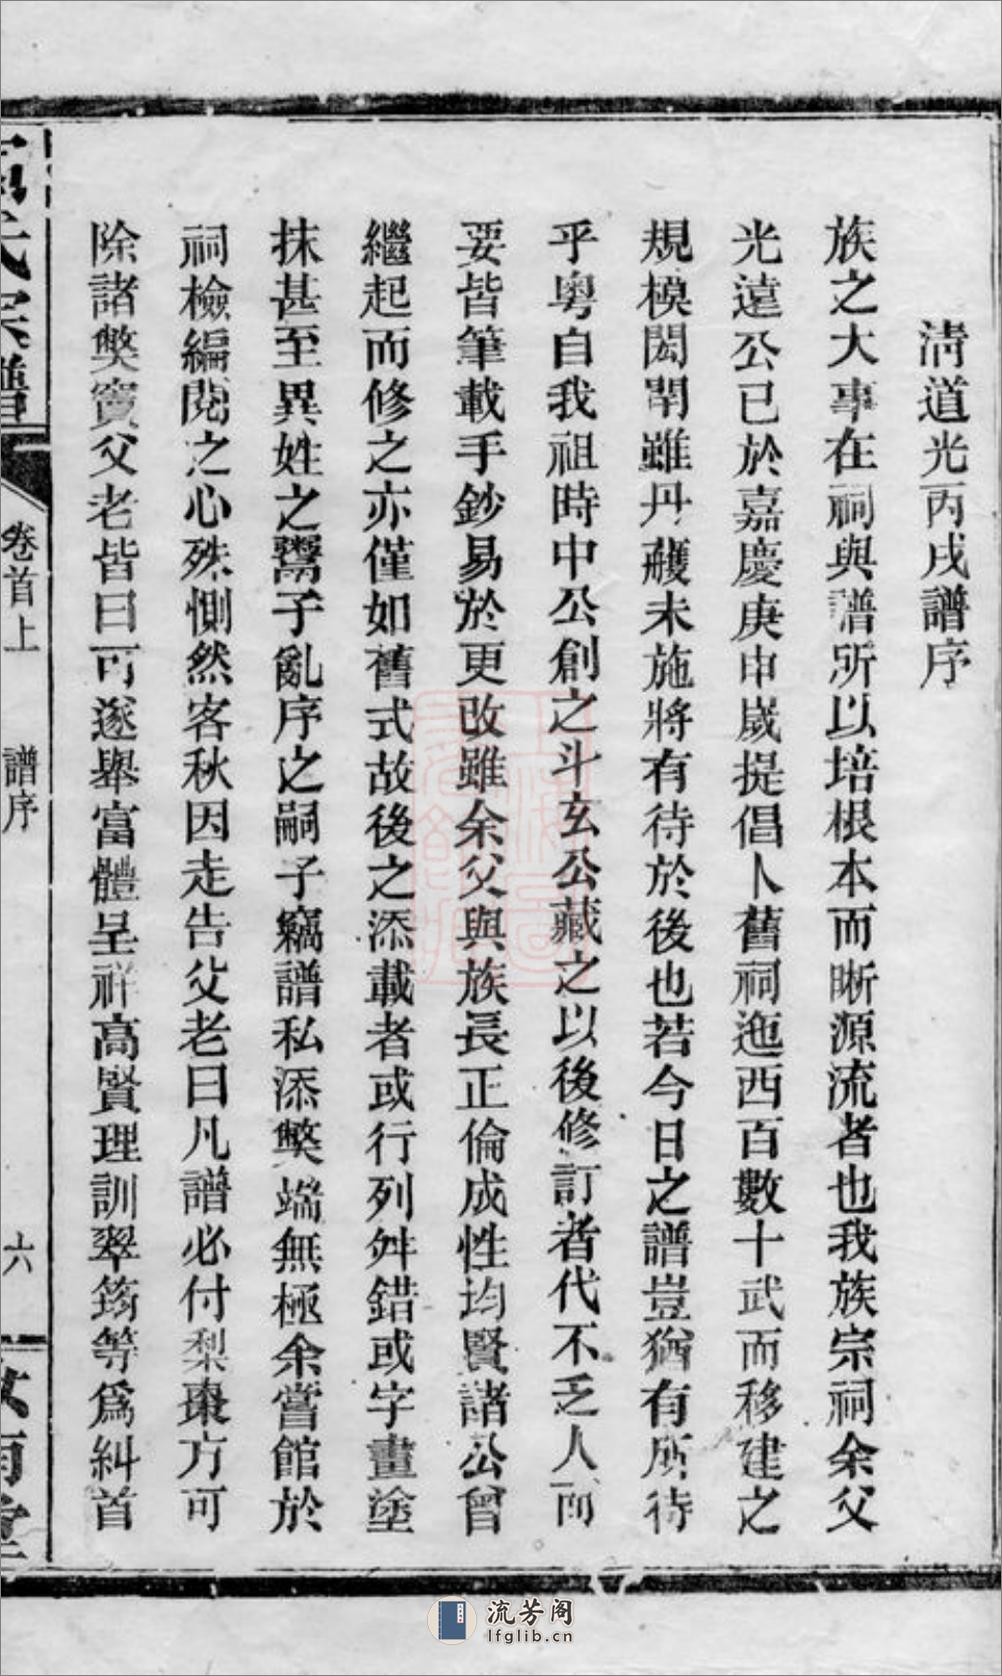 清道光丙戌譜序
族之大事在祠與譜所以培根本而晰源流者也我族宗祠余父
光遠公已於嘉慶庚申歲提倡卜舊祠迤西百數十武而移建之
規模閎閈雖丹雘未施將有待於後也若今日之譜豈猶有所待
乎粵自我祖時中公創之斗玄公藏之以後修訂者代不乏人而
要皆筆載手鈔易於更改雖余父與族長正倫成性均賢諸公曾
繼起而修之亦僅如舊式故後之添載者或行列舛錯或字畫塗
抹甚至異姓之鬻子亂序之嗣子竊譜私添獘端無極余嘗館於
祠檢編閱之心殊惻然客秋因走告父老曰凡譜必付梨棗方可
除諸獘竇父老皆曰可遂舉富體呈祥高賢理訓翠筠等爲糾首
氏宗譜
卷首上
譜序
六
流芳阁
lfglib.cn